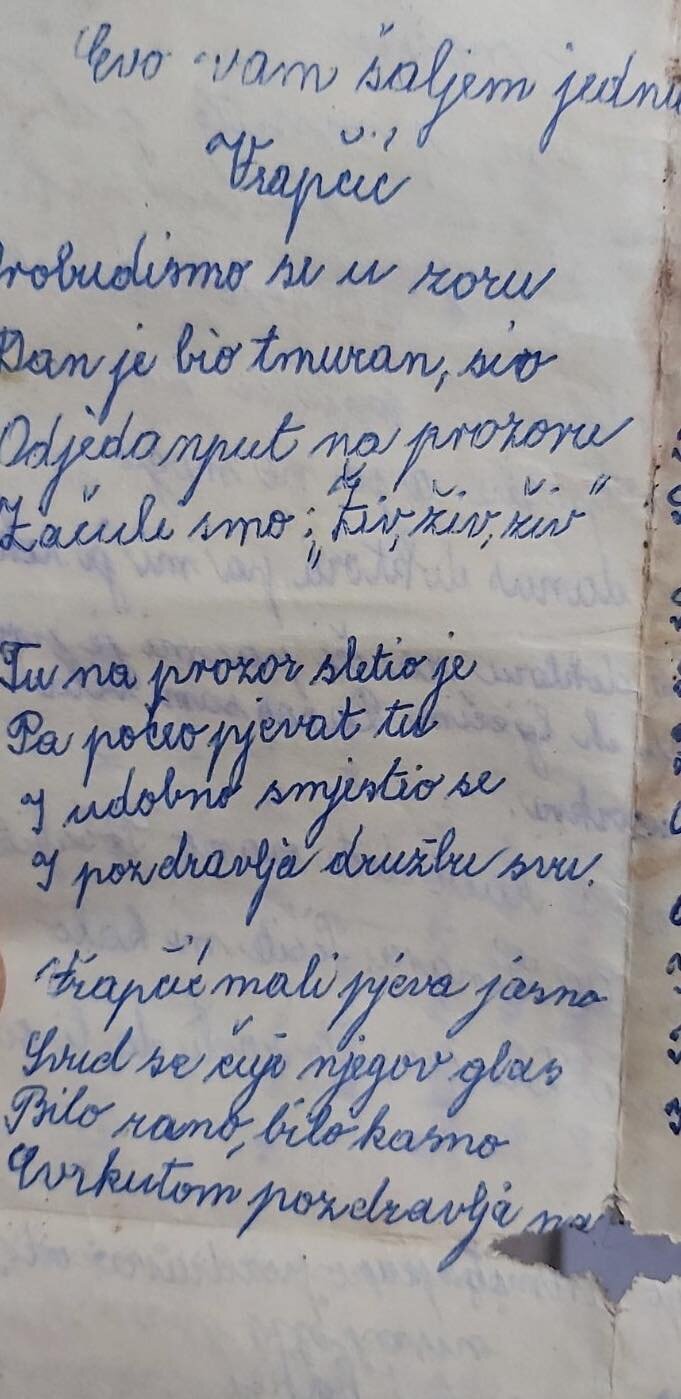 Evo vam šaljem jednu
Vrapčić
Probudismo se u zoru
Dan je bio tmuran, siv
Odjedanput na prozoru
Začuli smo: „Živ, živ, živ"
Tu na prozor sletio je
Pa počeo pjevat tu
I udobno smjestio se
I pozdravlja družbu svu.
Vrapčić mali pjeva jasno
Svud se čuje njegov glas
Bilo rano, bilo kasno
Cvrkutom pozdravlja na